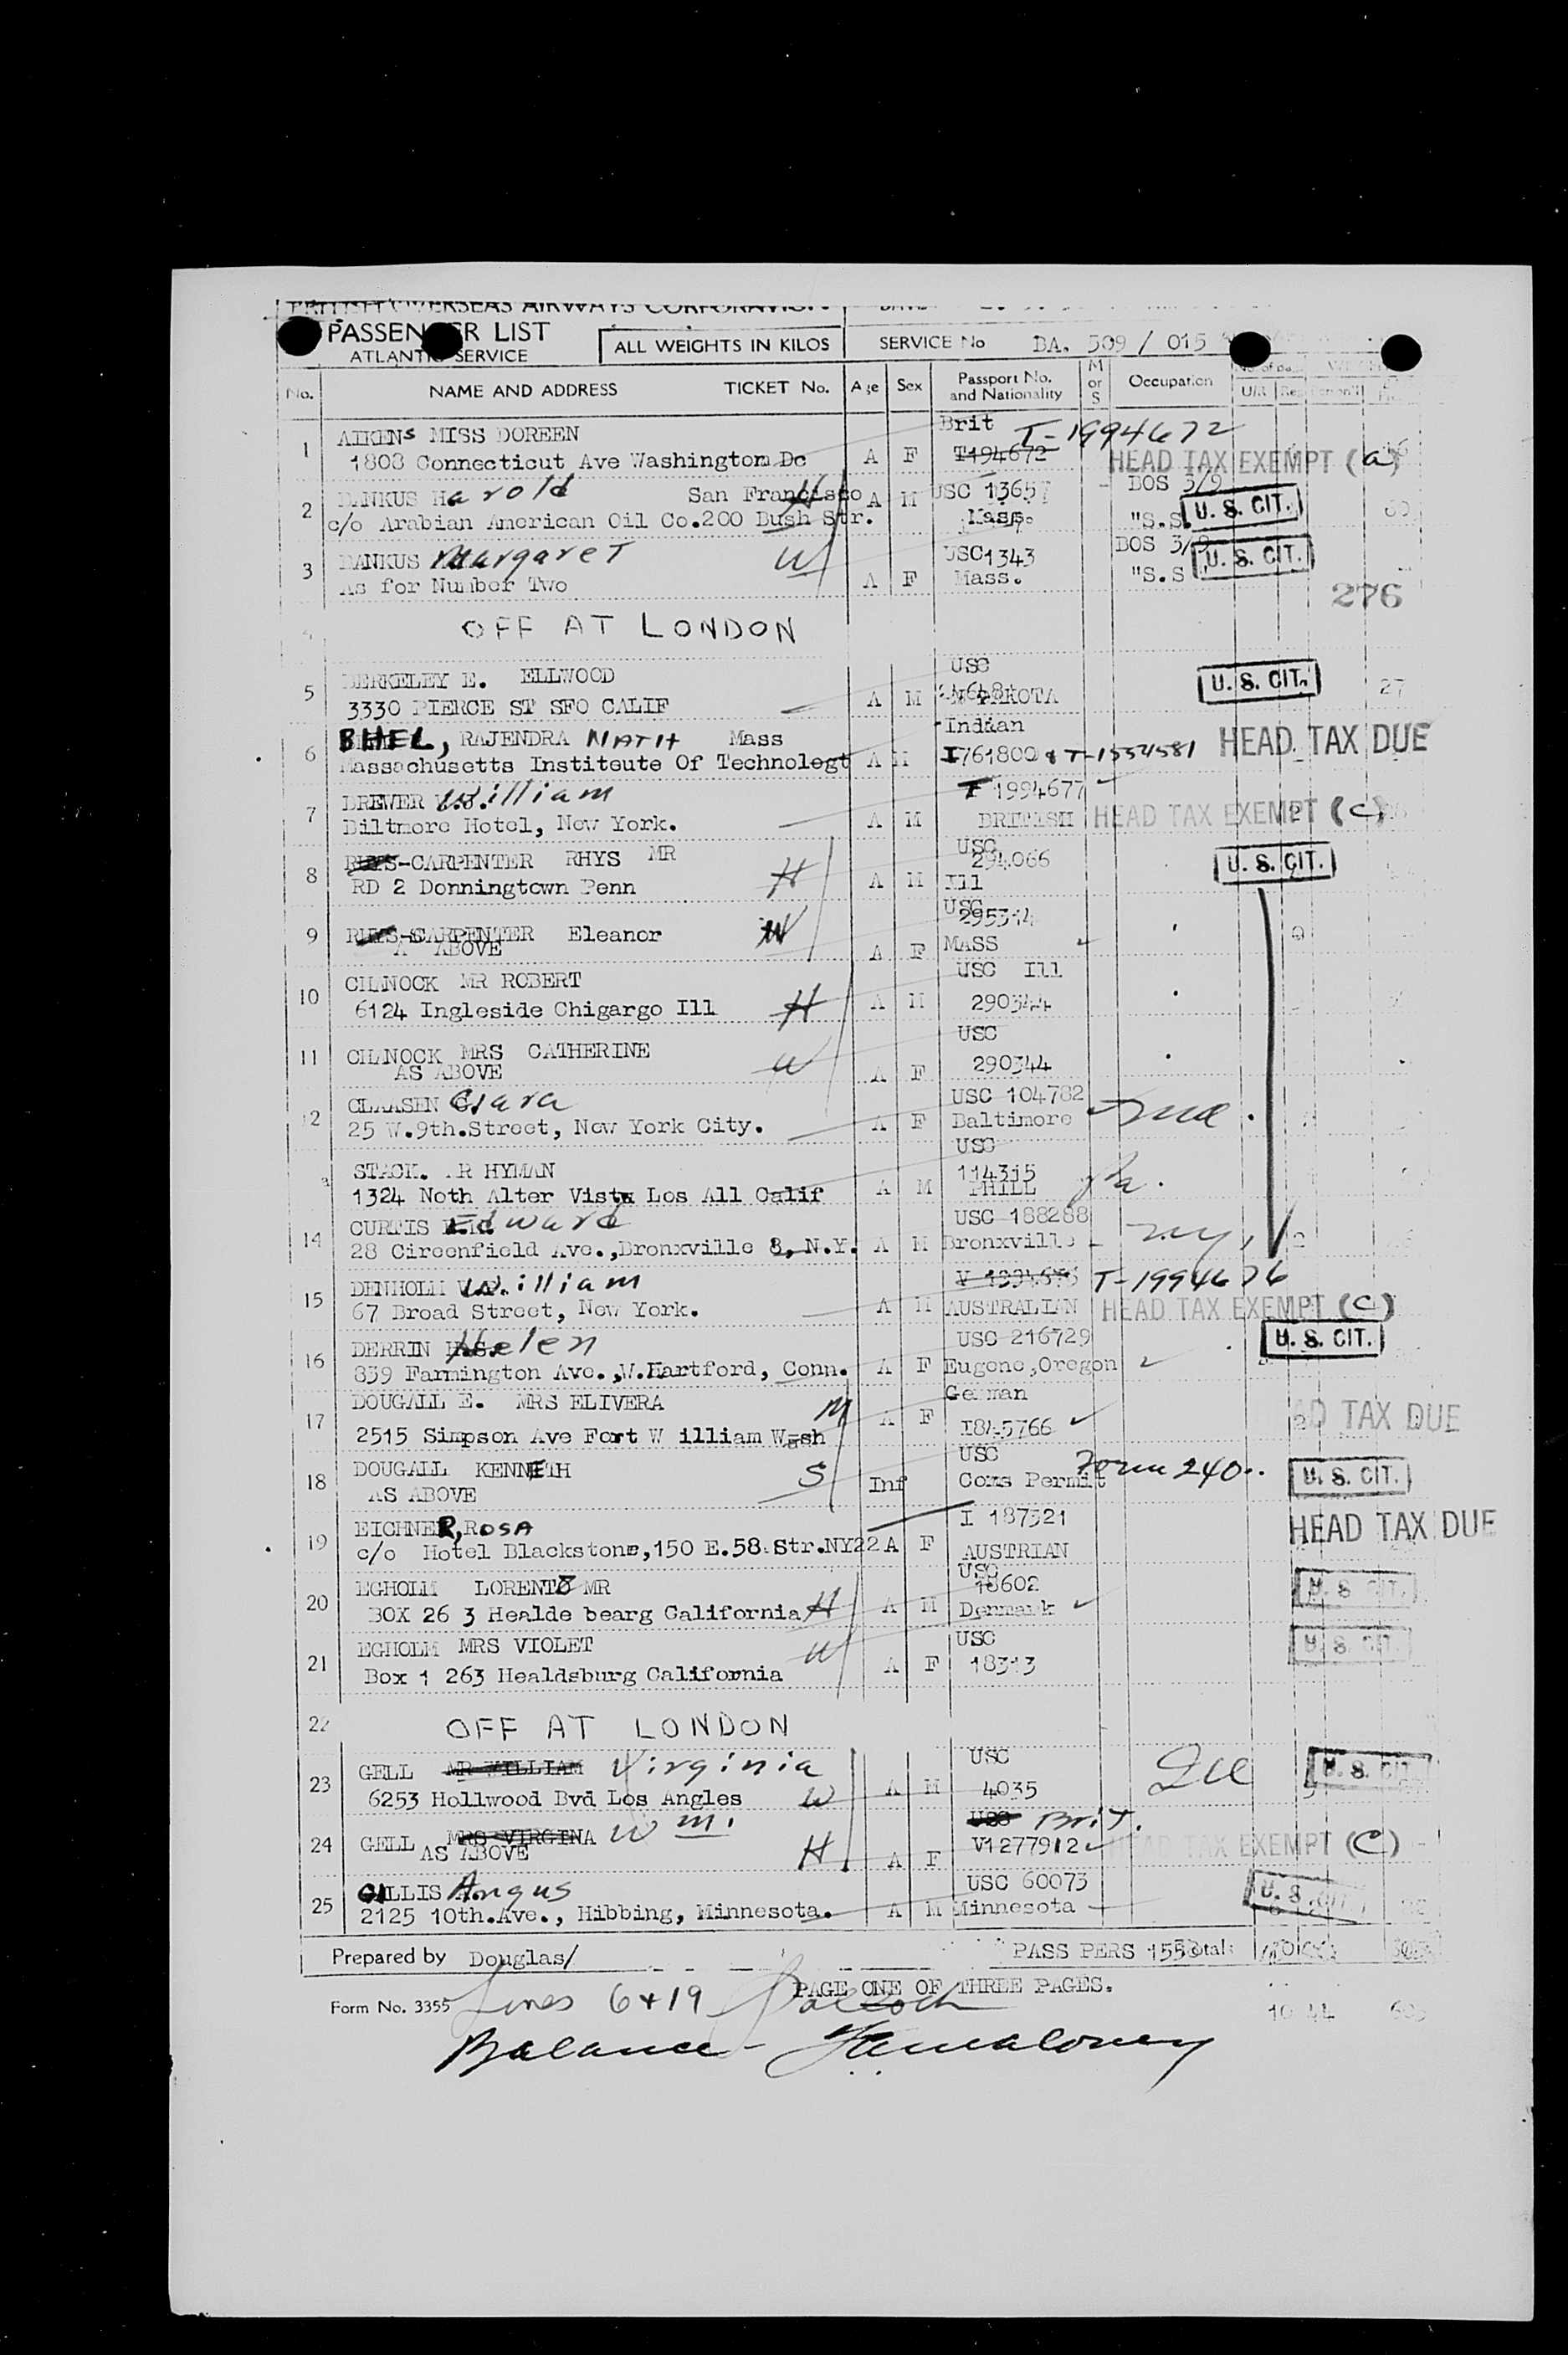 BRITISH OVERSEAS AIRWAYS CORPORATION
PASSENGER LIST
ATLANTIC SERVICE
ALL WEIGHTS IN KILOS
SERVICE No BA. 509 / 015
No. NAME AND ADDRESS TICKET No. Age Sex Passport No. and Nationality M or S Occupation U/R
1 AIKENs MISS DOREEN Brit T-1994672
1808 Connecticut Ave Washington Dc A F T194672 HEAD TAX EXEMPT (a)
2 DANKUS Harold San Francisco H A M USC 13657 BOS 3/9
c/o Arabian American Oil Co.200 Bush Str. Mass. "S.S. U. S. CIT.
3 DANKUS Margaret W USC1343 BOS 3/9 U. S. CIT.
As for Number Two A F Mass. "S.S
276
OFF AT LONDON
5 BERKELEY E. ELLWOOD USC U. S. CIT.
3330 PIERCE ST SFO CALIF A M 27
6 BHEL, RAJENDRA NATH Mass Indian HEAD TAX DUE
Massachusetts Institeute Of Technologt A M I761800 & T-1554581
7 BREWER William T 1994677
Biltmore Hotel, New York. A M BRITISH HEAD TAX EXEMPT (C)
8 RHYS-CARPENTER RHYS MR USC 294066
RD 2 Donningtown Penn H A M Ill U. S. CIT.
9 RHYS-CARPENTER Eleanor W USC 295314
ABOVE A F MASS
10 CILNOCK MR ROBERT USC Ill
6124 Ingleside Chigargo Ill H A M 290344
11 CILNOCK MRS CATHERINE W USC
AS ABOVE A F 290344
12 CLAASEN Clara USC 104782
25 W.9th.Street, New York City. A F Baltimore Md.
STACK. MR HYMAN USC 114315
1324 Noth Alter Vista Los All Calif A M PHILL Pa.
14 CURTIS Edward USC 188288
28 Circenfield Ave.,Bronxville 8, N.Y. A M Bronxville N.Y.
15 DENHOLM William T-1994676
67 Broad Street, New York. A M AUSTRALIAN HEAD TAX EXEMPT (C)
16 DERRIN Helen USC 216729 U. S. CIT.
839 Farmington Ave.,W.Hartford, Conn. A F Eugene,Oregon
17 DOUGALL E. MRS ELIVERA M A F German
2515 Simpson Ave Fort W illiam Wash I845766 TAX DUE
18 DOUGALL KENNETH S Inf USC Form 240
AS ABOVE Cons Permit U. S. CIT.
19 EICHNER, ROSA I 187321 HEAD TAX DUE
c/o Hotel Blackstone,150 E.58.Str.NY22 A F AUSTRIAN
20 EGHOLM LORENTO MR USC 18602 U. S. CIT.
BOX 26 3 Healde bearg California H A M Denmark
21 EGHOLM MRS VIOLET W USC U. S. CIT.
Box 1 263 Healdsburg California A F 18313
22 OFF AT LONDON
23 GELL MR WILLIAM Virginia USC Ill U. S. CIT.
6253 Hollwood Bvd Los Angles W A M 4035
24 GELL MRS VIRGINA Wm. USC Brit.
AS ABOVE H A F V1277912 HEAD TAX EXEMPT (C)
25 GILLIS Angus USC 60073 U. S. CIT.
2125 10th.Ave., Hibbing, Minnesota. A M Minnesota
Prepared by Douglas/ PASS PERS 1553 Total
PAGE ONE OF THREE PAGES.
Form No. 3355 Lines 6 + 19
Balance-